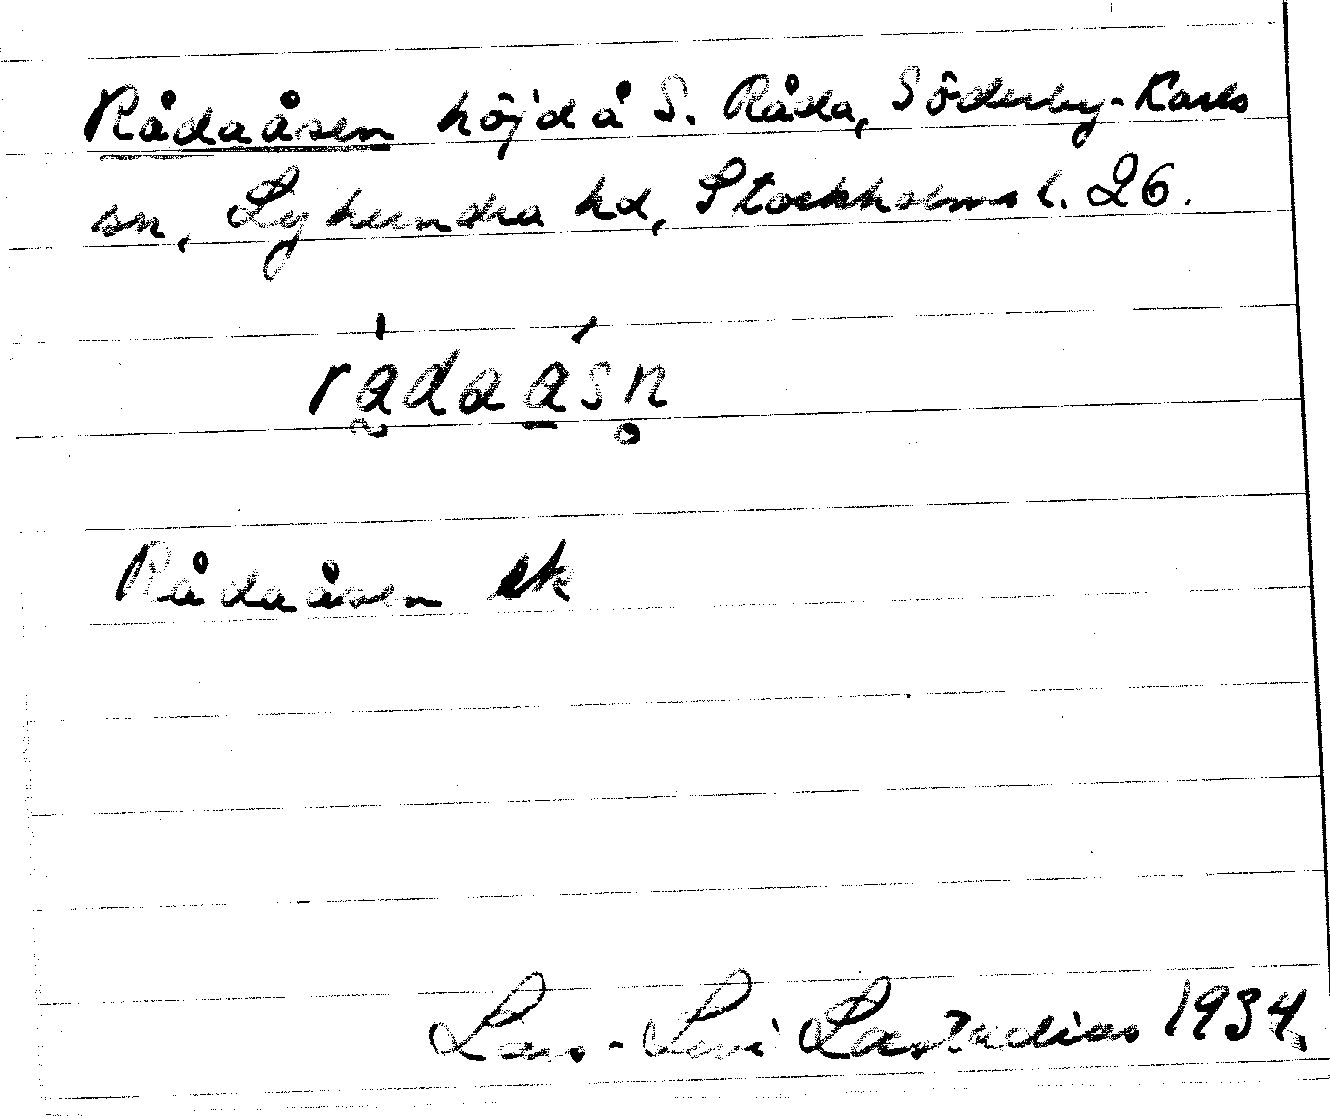 Rådaåsen höjd å S. Råda, Söderby-Karls
sn, Lyhundra hd, Stockholms l. 26.
rådaåsn
Rådaåsen ek
Lars-Levi Læstadius 1934.